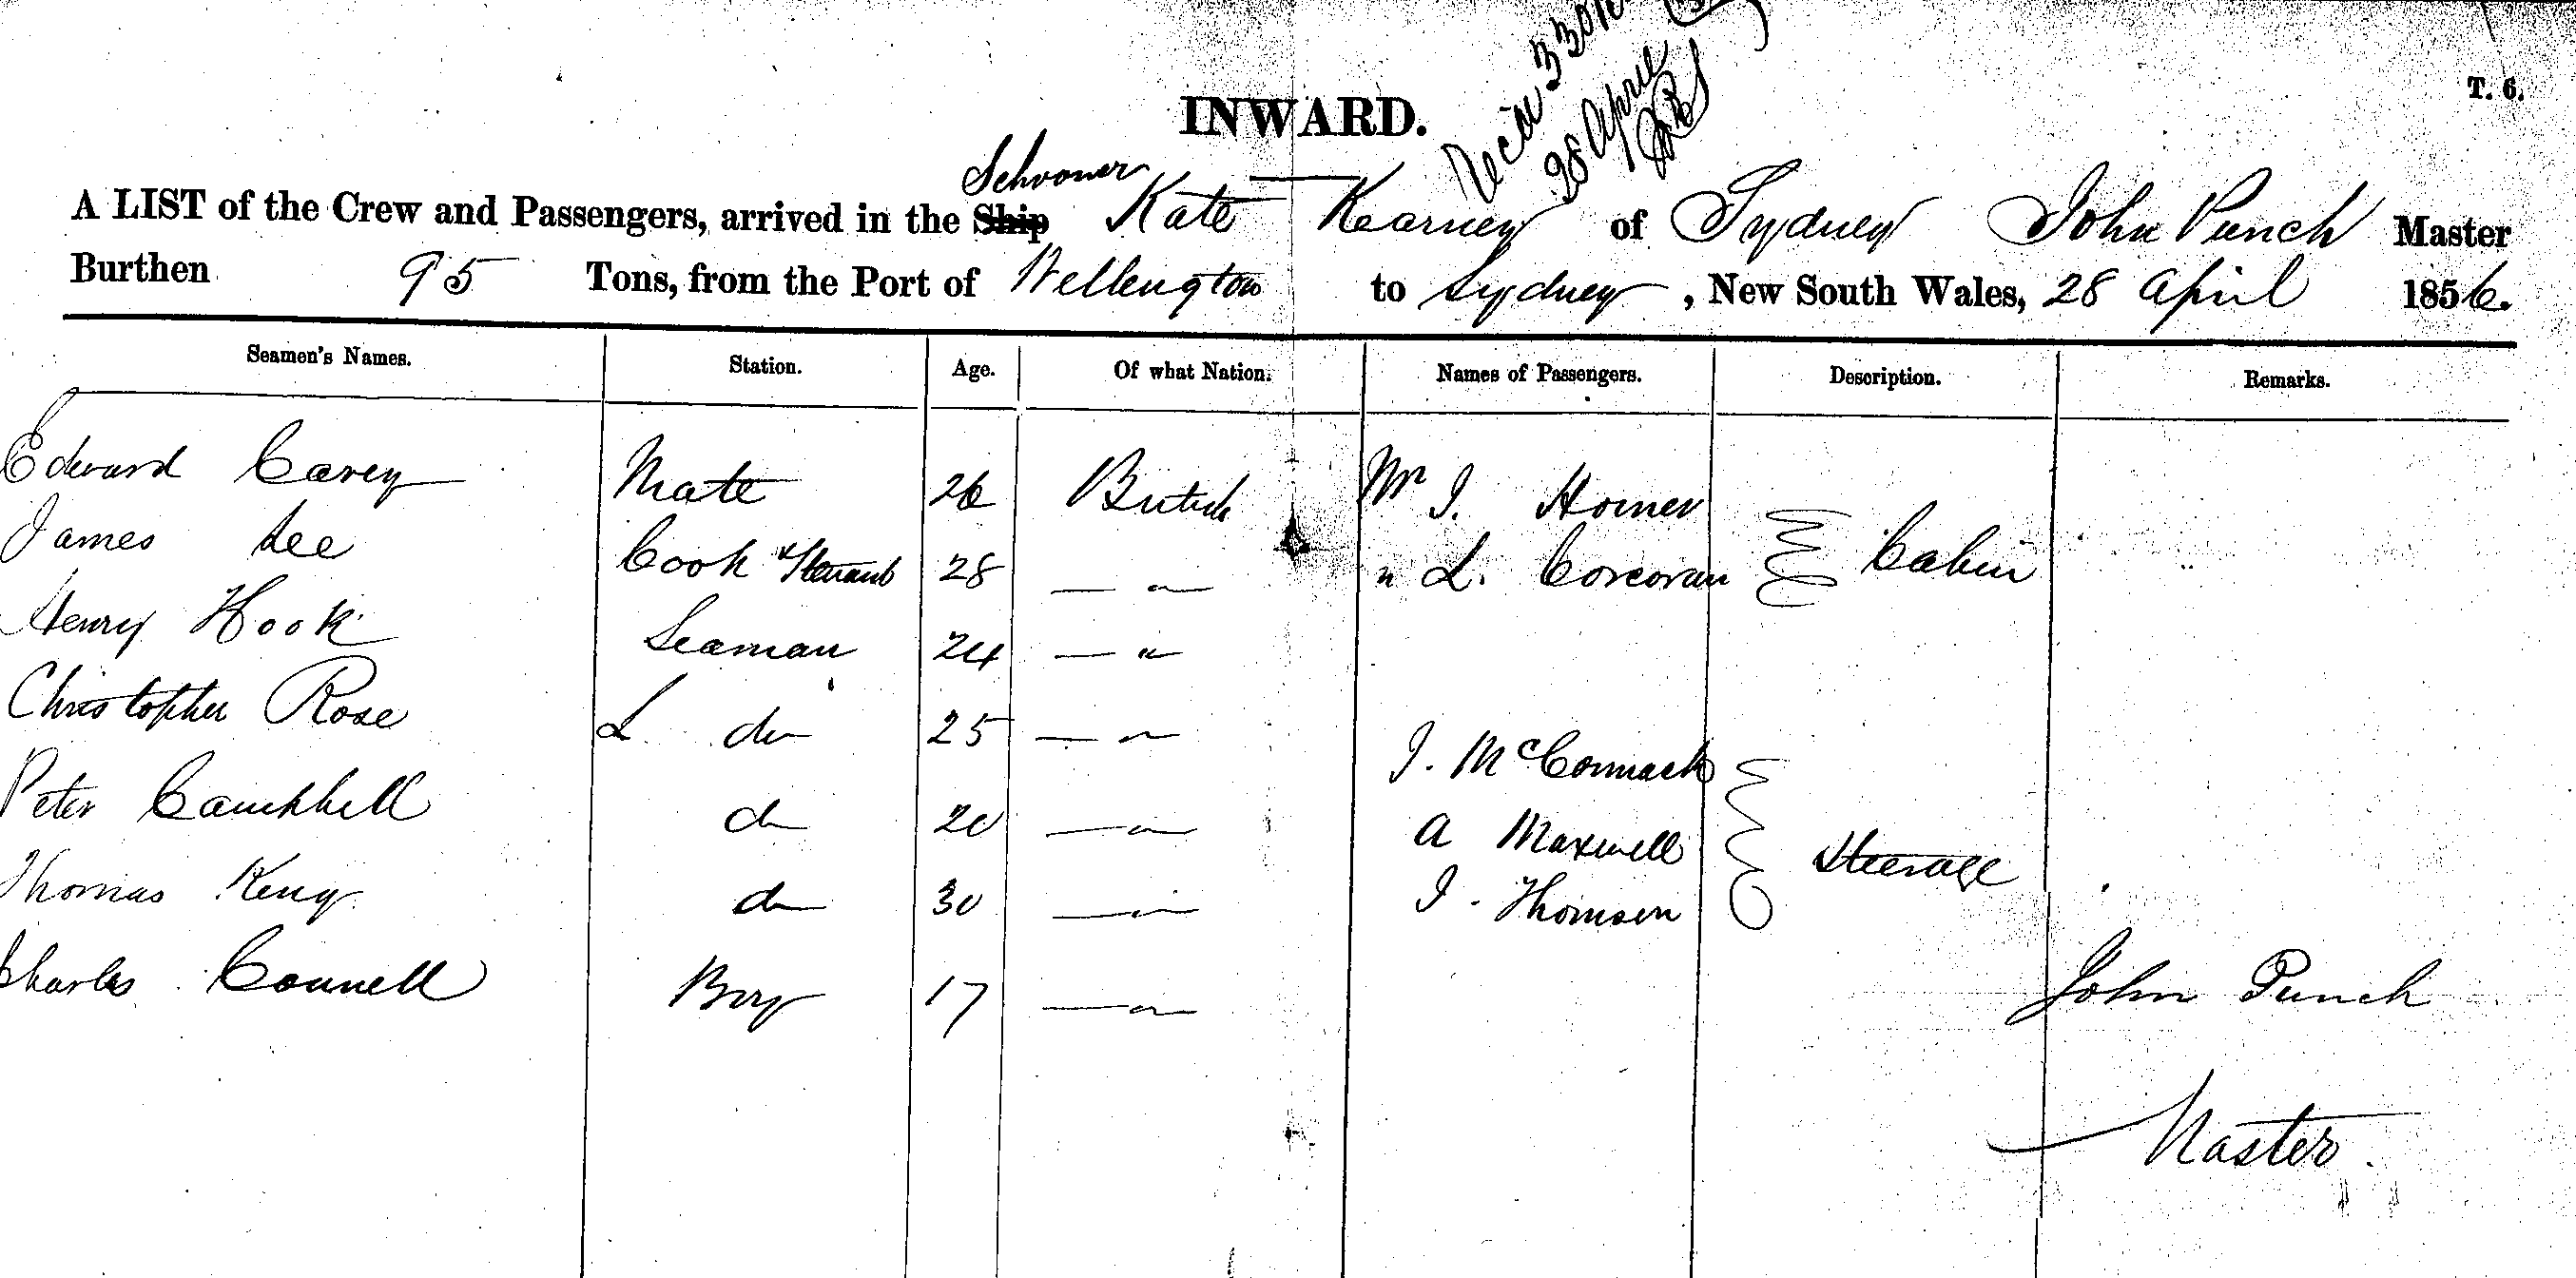 T. 6.
INWARD.
Recd 330
28 April
Schooner
A LIST of the Crew and Passengers, arrived in the Ship Kate Kearney of Sydney John Punch Master
Burthen 95 Tons, from the Port of Wellington to Sydney, New South Wales, 28 April 1856.
Seamen's Names. Station. Age. Of what Nation. Names of Passengers. Description. Remarks.
Edward Carey Mate 26 British Mr J. Horner
James Lee Cook & Steward 28 — " — " L. Corcoran Cabin
Henry Hook Seaman 24 — "
Christopher Rose do 25 — "
J. McCormack
Peter Campbell do 20 — "
A Maxwell Steerage
Thomas King do 30 — " J. Thomson
Charles Connell Boy 17 — "
John Punch
Master.